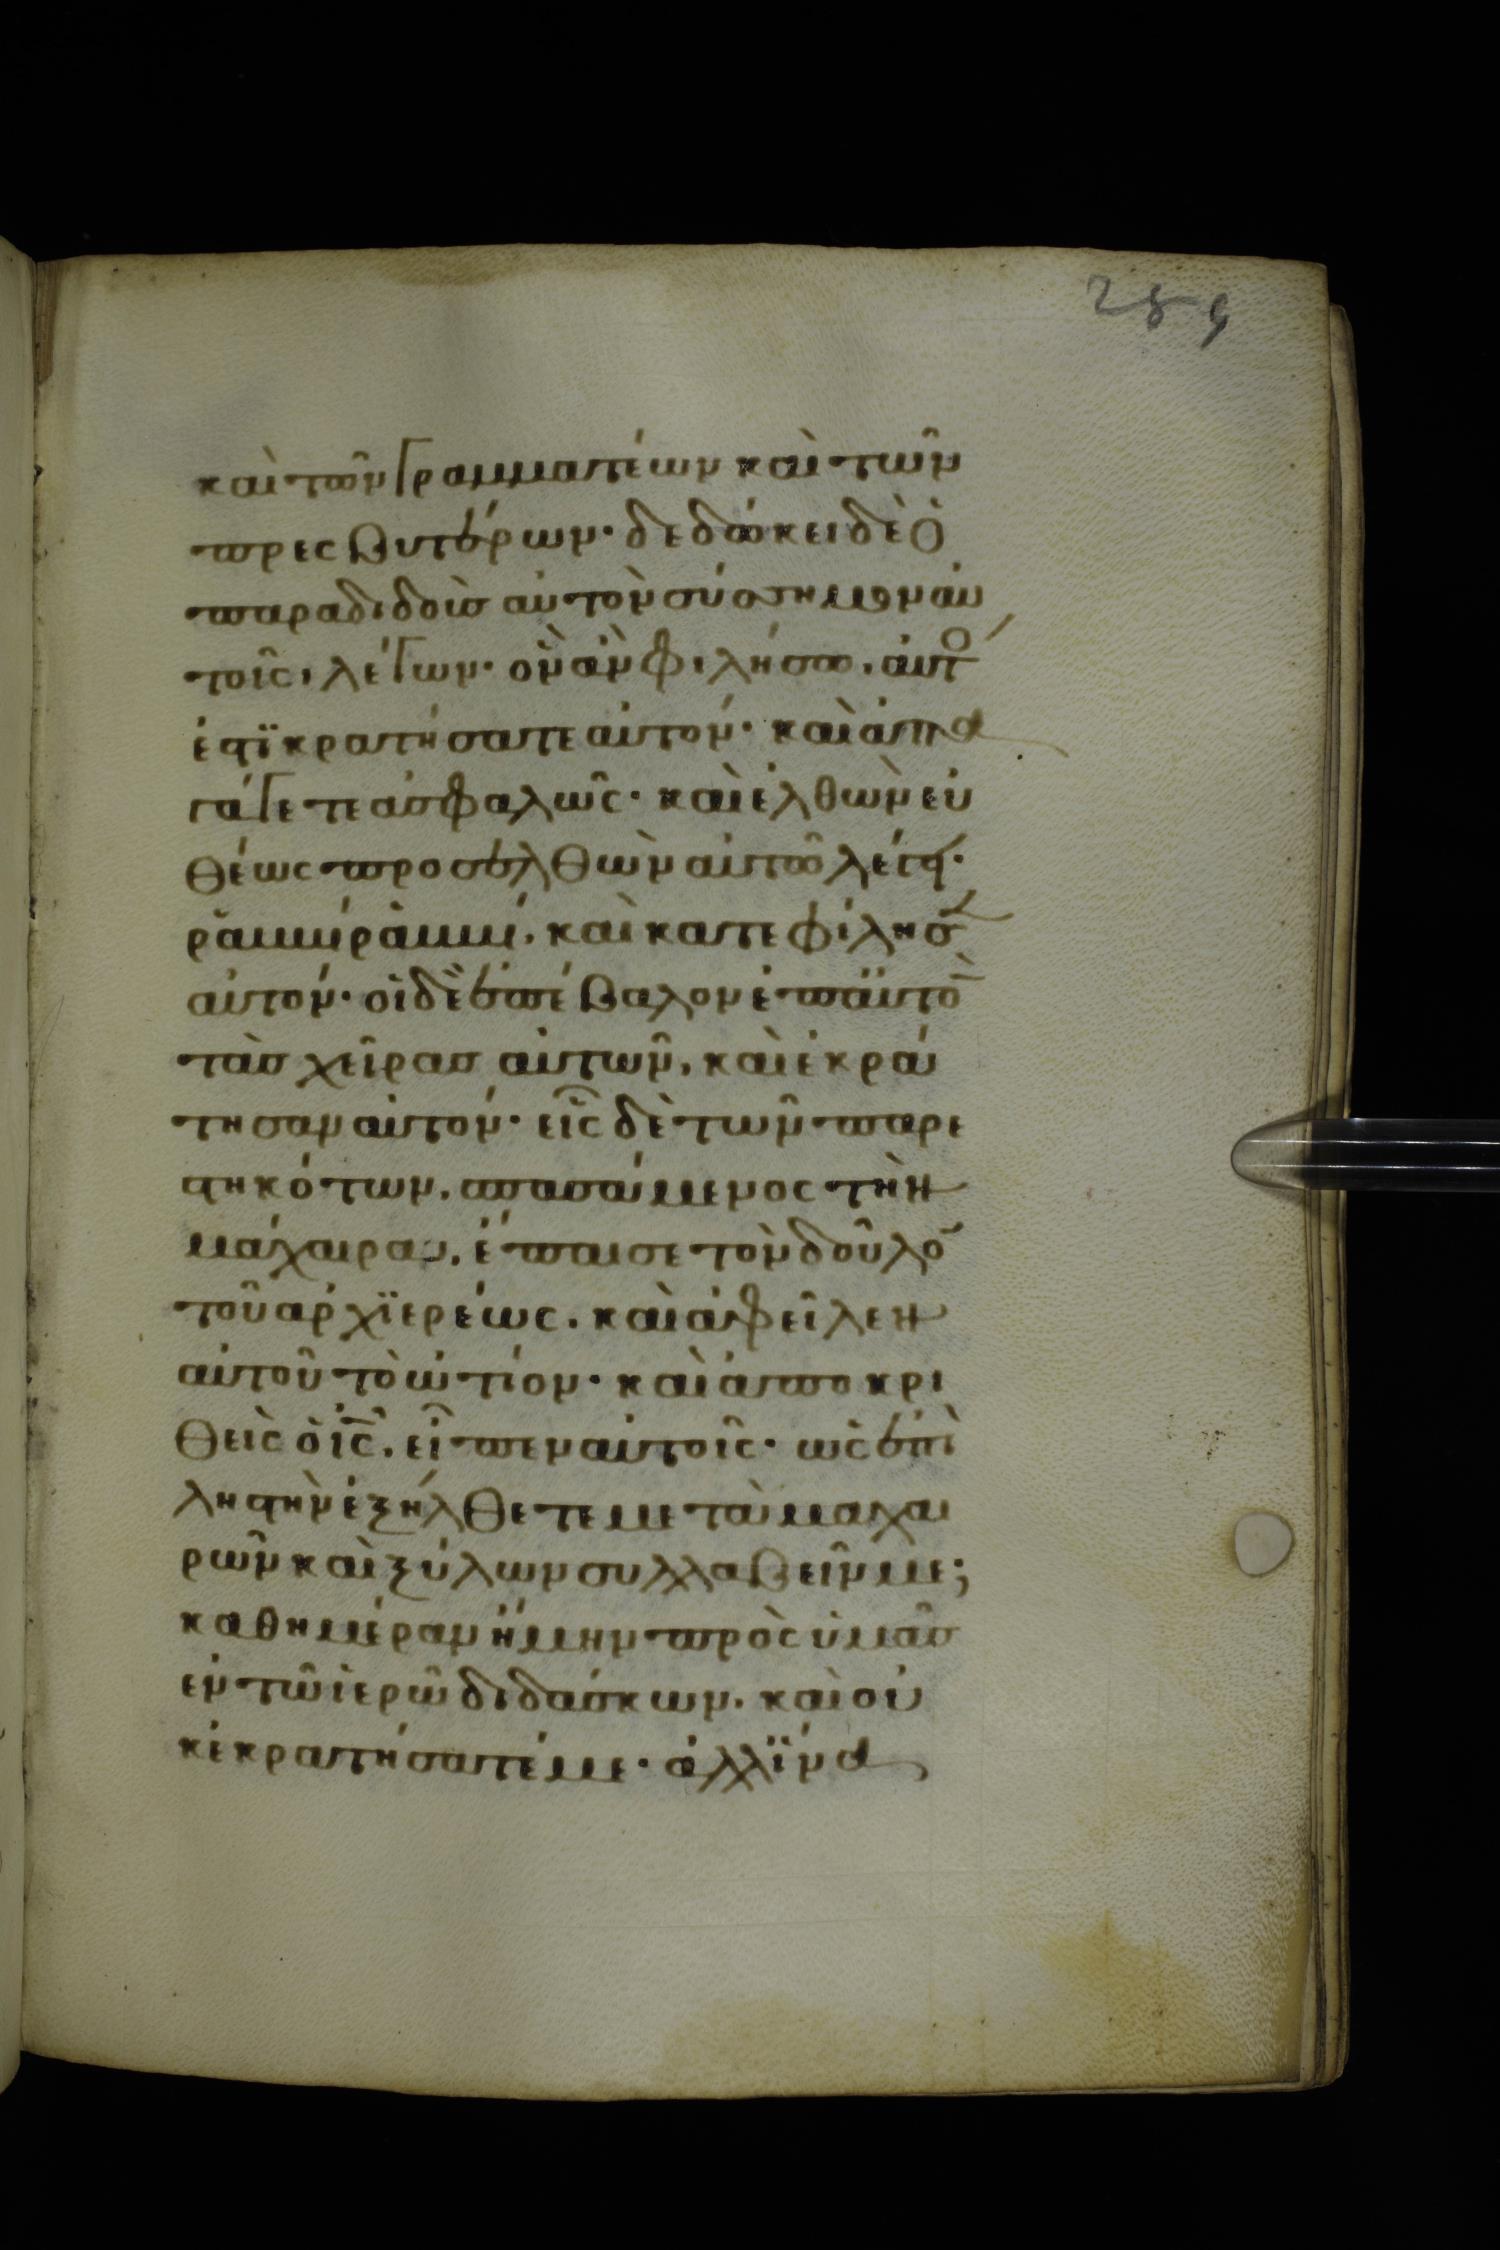 289
καὶ τῶν γραμματέων καὶ τῶν
πρεσβυτέρων· δεδώκει δὲ ὁ
παραδιδοὺσ αὐτὸν σύσσημον αὐ
τοῖς, λέγων· ὃν ἂν φιλήσω, αὐτό
ἐστϊ κρατήσατε αὐτόν· καὶ ἀπα
γάγετε ἀσφαλῶς· καὶ ἐλθὼν εὐ
θέως προσελθὼν αὐτῶ λέγει·
ραββὶ ραββί, καὶ κατεφίλησεν
αὐτόν· οἱ δὲ ἐπέβαλον ἐπ αὐτὸ
τὰσ χεῖρασ αὐτῶν, καὶ ἐκρά
τησαν αὐτόν· εἷς δὲ τῶν παρε
στηκότων, σπασάμενος τὴν
μάχαιραν, ἔπαισε τὸν δοῦλο
τοῦ ἀρχϊερέως. καὶ ἀφεῖλεν
αὐτοῦ τὸ ὠτίον· καὶ ἀποκρι
θεὶς ὁ ις, εἶπεν αὐτοῖς· ὡς ἐπὶ
ληστὴν ἐξήλθετε μετὰ μαχαι
ρῶν καὶ ξύλων συλλαβεῖν με;
καθημέραν ἤμην πρὸς ὑμᾶσ
ἐν τῶ ἱερῶ διδάσκων, καὶ οὐ
κ ἐκρατήσατέ με· ἀλλ ϊνα